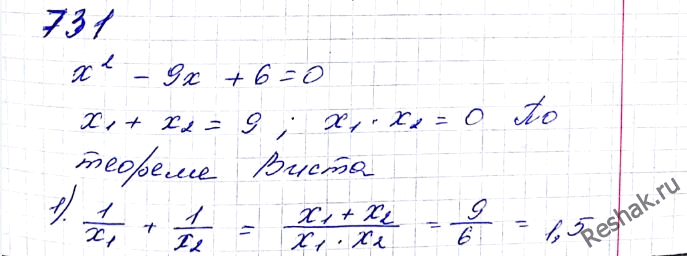 731
x² - 9x + 6 = 0
x₁ + x₂ = 9 ; x₁ · x₂ = 0 По
теореме Виета
1). 1/x₁ + 1/x₂ = (x₁ + x₂)/(x₁ · x₂) = 9/6 = 1,5
Reshak.ru